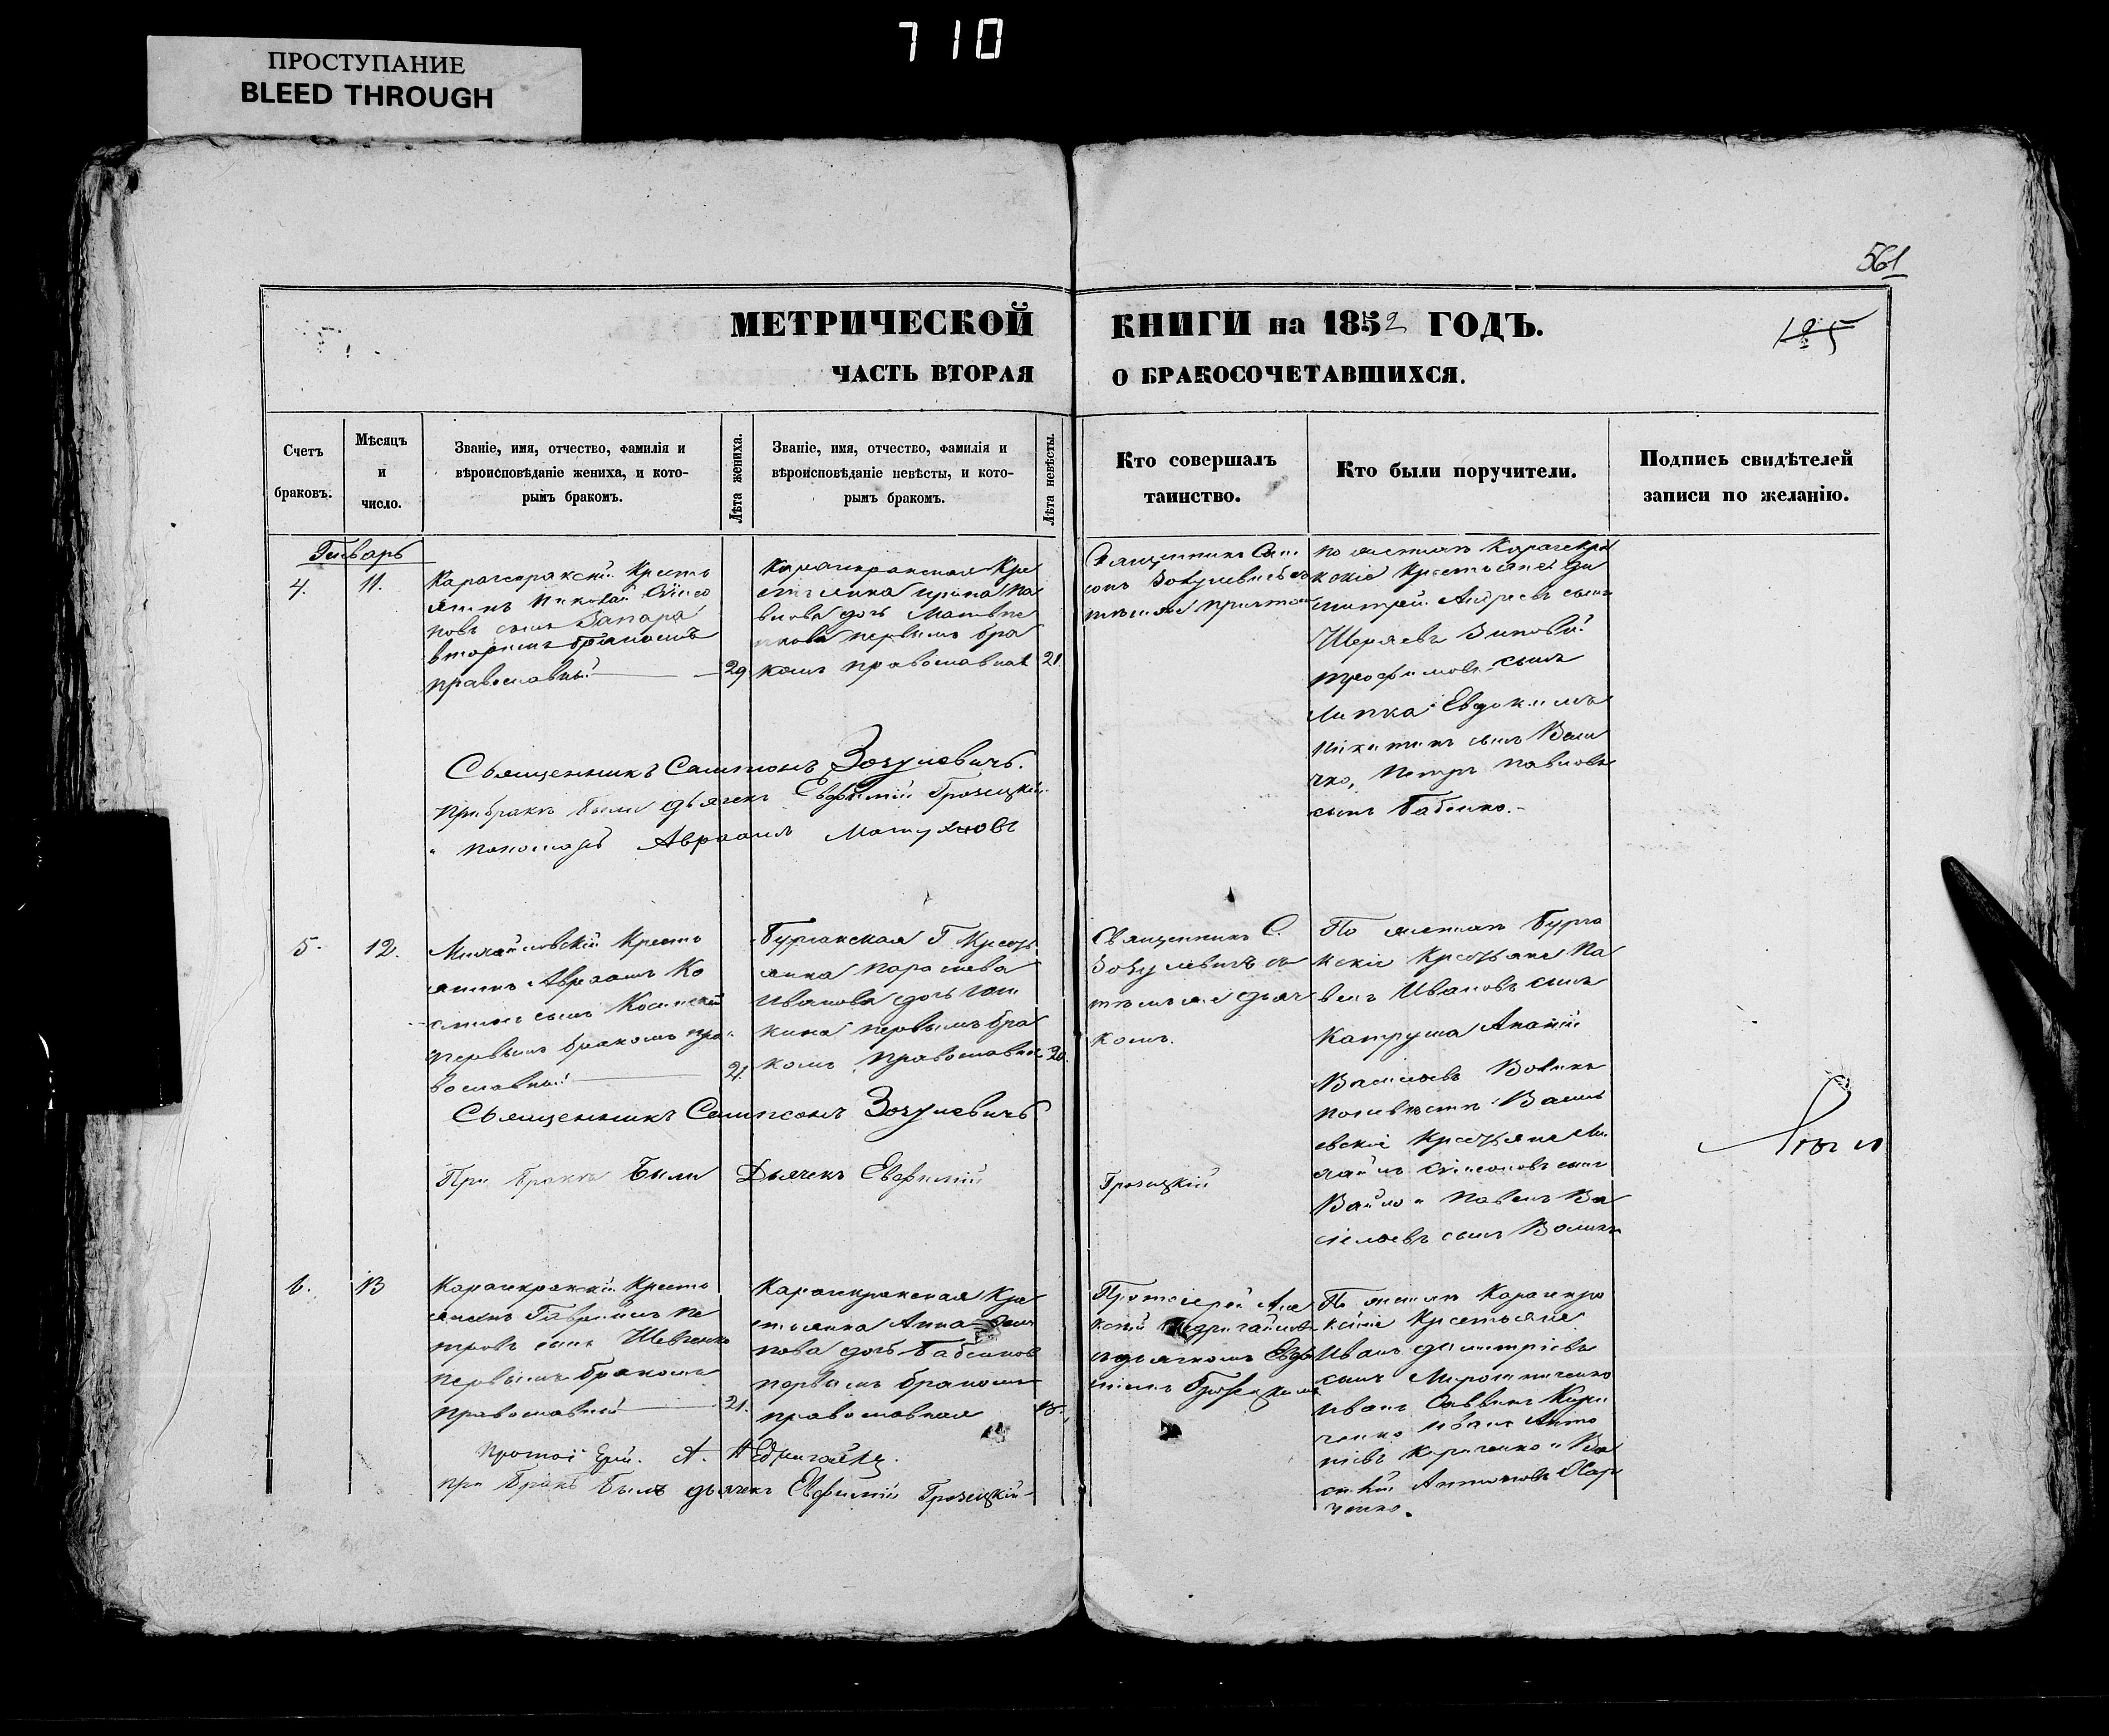 710
ПРОСТУПАНИЕ
BLEED THROUGH
561
МЕТРИЧЕСКОЙ КНИГИ на 1852 ГОДЪ.
125
ЧАСТЬ ВТОРАЯ О БРАКОСОЧЕТАВШИХСЯ.
Счетъ браковъ.
Мѣсяцъ и число.
Званіе, имя, отчество, фамилія и
вѣроисповѣданіе жениха, и кото-
рымъ бракомъ.
Лѣта жениха.
Званіе, имя, отчество, фамилія и
вѣроисповѣданіе невѣсты, и кото-
рымъ бракомъ.
Лѣта невѣсты.
Кто совершалъ
таинство.
Кто были поручители.
Подпись свидѣтелей
записи по желанію.
Генварь
4.
11.
Карачекракскій Кресть
янинъ Николай
новъ сынъ Запара
вторымъ бракомъ
православный
29
Карачекракская Кре
стьянка Ирина Па
влова дочь
первымъ бра
комъ православная
21
Священникъ Сам
сонъ Зозулевичь съ
тѣмъ же причтомъ
по жениху Карачекра
кскіе Крестьяне Ди
митрій Андреевъ сынъ
Зиновій
Трофимовъ сынъ
Липка Евдокимъ
Никитинъ сынъ Вели
чко, Петръ Павловъ
сынъ Бабенко.-
Священникъ Сампсонъ Зозулевичь.
При бракѣ были дьячекъ Евфимій Грозецкій
и пономарь Авраамъ
5.
12.
Михайловскій Кресть
янинъ Авраамъ Ко
сынъ
первымъ бракомъ пра
вославный
21.
Бурчакская Г. Кресть
янка Параскева
Иванова дочь
кина первымъ бра
комъ православная
20.
Священникъ С.
Зозулевичь съ
тѣмъ же дьяч
комъ.
По жениху Бурча
кскіе Крестьяне Па
велъ Ивановъ сынъ
Катруша Ананій
Васильевъ Воликъ
по невѣстѣ Василь
евскіе Крестьяне Ми
хаилъ Симоновъ сынъ
Вайло и Павелъ Ва
сильевъ сынъ
Священникъ Сампсонъ Зозулевичь
При бракѣ Были Дьячекъ Евфимій Грозецкій
6.
13
Карачекракскій Кресть
янинъ Гавріилъ Пе
тровъ сынъ Шевченко
первымъ бракомъ
православный
21.
Карачекракская Кре
стьянка Анна
пова дочь Бабенкова
первымъ бракомъ
православная
Протоіерей Але
ксѣй
съ дьячкомъ Евфи
міемъ Грозецкимъ
По жениху Карачекра
кскіе Крестьяне
Иванъ Димитріевъ
сынъ Мирошниченко
Иванъ Саввинъ
Иванъ Анто
новъ и Ва
силій Антоновъ Хар
ченко.
Протоіерей. А.
при Бракѣ Былъ дьячекъ Евфимій Грозецкій-